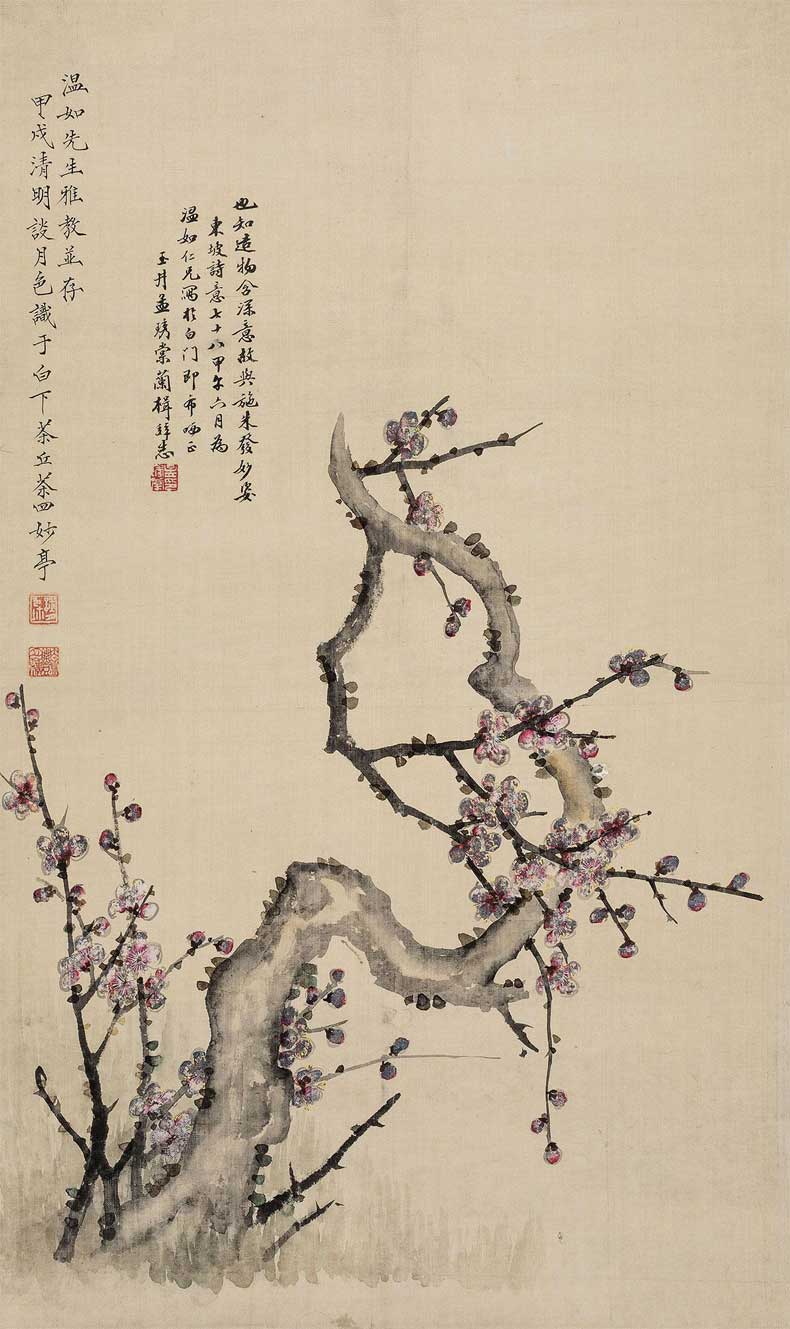 也知造物含深意故與施朱發妙姿
東坡詩意七十八甲午六月為
温如仁兄寫於白门即希哂正
玉井孟
棠蘭楫
志
温如先生雅教並存
甲戍清明談月色識于白下茶丘茶四妙亭